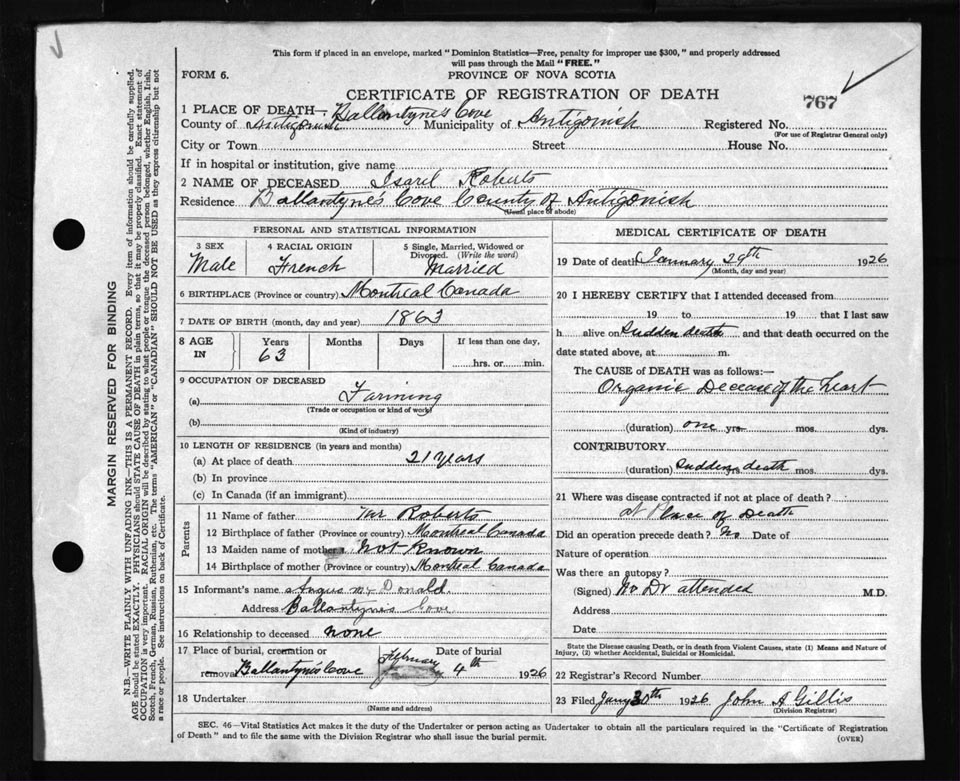 This form if placed in an envelope, marked "Dominion Statistics—Free, penalty for improper use $300," and properly addressed
will pass through the Mail "FREE."
FORM 6.
PROVINCE OF NOVA SCOTIA
CERTIFICATE OF REGISTRATION OF DEATH
767
1 PLACE OF DEATH— Ballantynes Cove
County of Antigonish Municipality of Antigonish Registered No.
(For use of Registrar General only)
City or Town Street House No.
If in hospital or institution, give name
2 NAME OF DECEASED Isaril Roberts
Residence Ballantynes Cove County of Antigonish
(Usual place of abode)
PERSONAL AND STATISTICAL INFORMATION
3 SEX 4 RACIAL ORIGIN 5 Single, Married, Widowed or
Divorced. (Write the word)
Male French Married
6 BIRTHPLACE (Province or country) Montreal Canada
7 DATE OF BIRTH (month, day and year) 1863
8 AGE IN Years Months Days If less than one day,
63 hrs. or min.
9 OCCUPATION OF DECEASED
(a) Farming
(Trade or occupation or kind of work)
(b)
(Kind of industry)
10 LENGTH OF RESIDENCE (in years and months)
(a) At place of death 21 Years
(b) In province
(c) In Canada (if an immigrant)
Parents
11 Name of father Mr Roberts
12 Birthplace of father (Province or country) Montreal Canada
13 Maiden name of mother Not Known
14 Birthplace of mother (Province or country) Montreal Canada
15 Informant's name Angus McDonald
Address Ballantynes Cove
16 Relationship to deceased none
17 Place of burial, cremation or Date of burial
removal Ballantynes Cove February 4th 1926
18 Undertaker
(Name and address)
MEDICAL CERTIFICATE OF DEATH
19 Date of death January 29th 1926
(Month, day and year)
20 I HEREBY CERTIFY that I attended deceased from
19 to 19 that I last saw
h alive on Sudden death and that death occurred on the
date stated above, at m.
The CAUSE of DEATH was as follows:—
Organic Decease of the heart
(duration) one yrs. mos. dys.
CONTRIBUTORY
(duration) Sudden yrs. death mos. dys.
21 Where was disease contracted if not at place of death?
at Place of Death
Did an operation precede death? No Date of
Nature of operation
Was there an autopsy?
(Signed) No Dr attended M.D.
Address
Date
State the Disease causing Death, or in death from Violent Causes, state (1) Means and Nature of
Injury, (2) whether Accidental, Suicidal or Homicidal.
22 Registrar's Record Number
23 Filed Jany 30th 1926 John A Gillis
(Division Registrar)
SEC. 46—Vital Statistics Act makes it the duty of the Undertaker or person acting as Undertaker to obtain all the particulars required in the "Certificate of Registration
of Death" and to file the same with the Division Registrar who shall issue the burial permit.
(OVER)
MARGIN RESERVED FOR BINDING
N.B.—WRITE PLAINLY WITH UNFADING INK—THIS IS A PERMANENT RECORD. Every item of information should be carefully supplied.
AGE should be stated EXACTLY. PHYSICIANS should STATE CAUSE OF DEATH in plain terms, so that it may be properly classified. Exact statement of
OCCUPATION is very important. RACIAL ORIGIN will be described by stating to what people or tongue the deceased person belonged, whether English, Irish,
Scotch, French, German, Russian, Ruthenian, etc. The terms "AMERICAN" or "CANADIAN" SHOULD NOT BE USED as they express citizenship but not
a race or people. See instructions on back of Certificate.